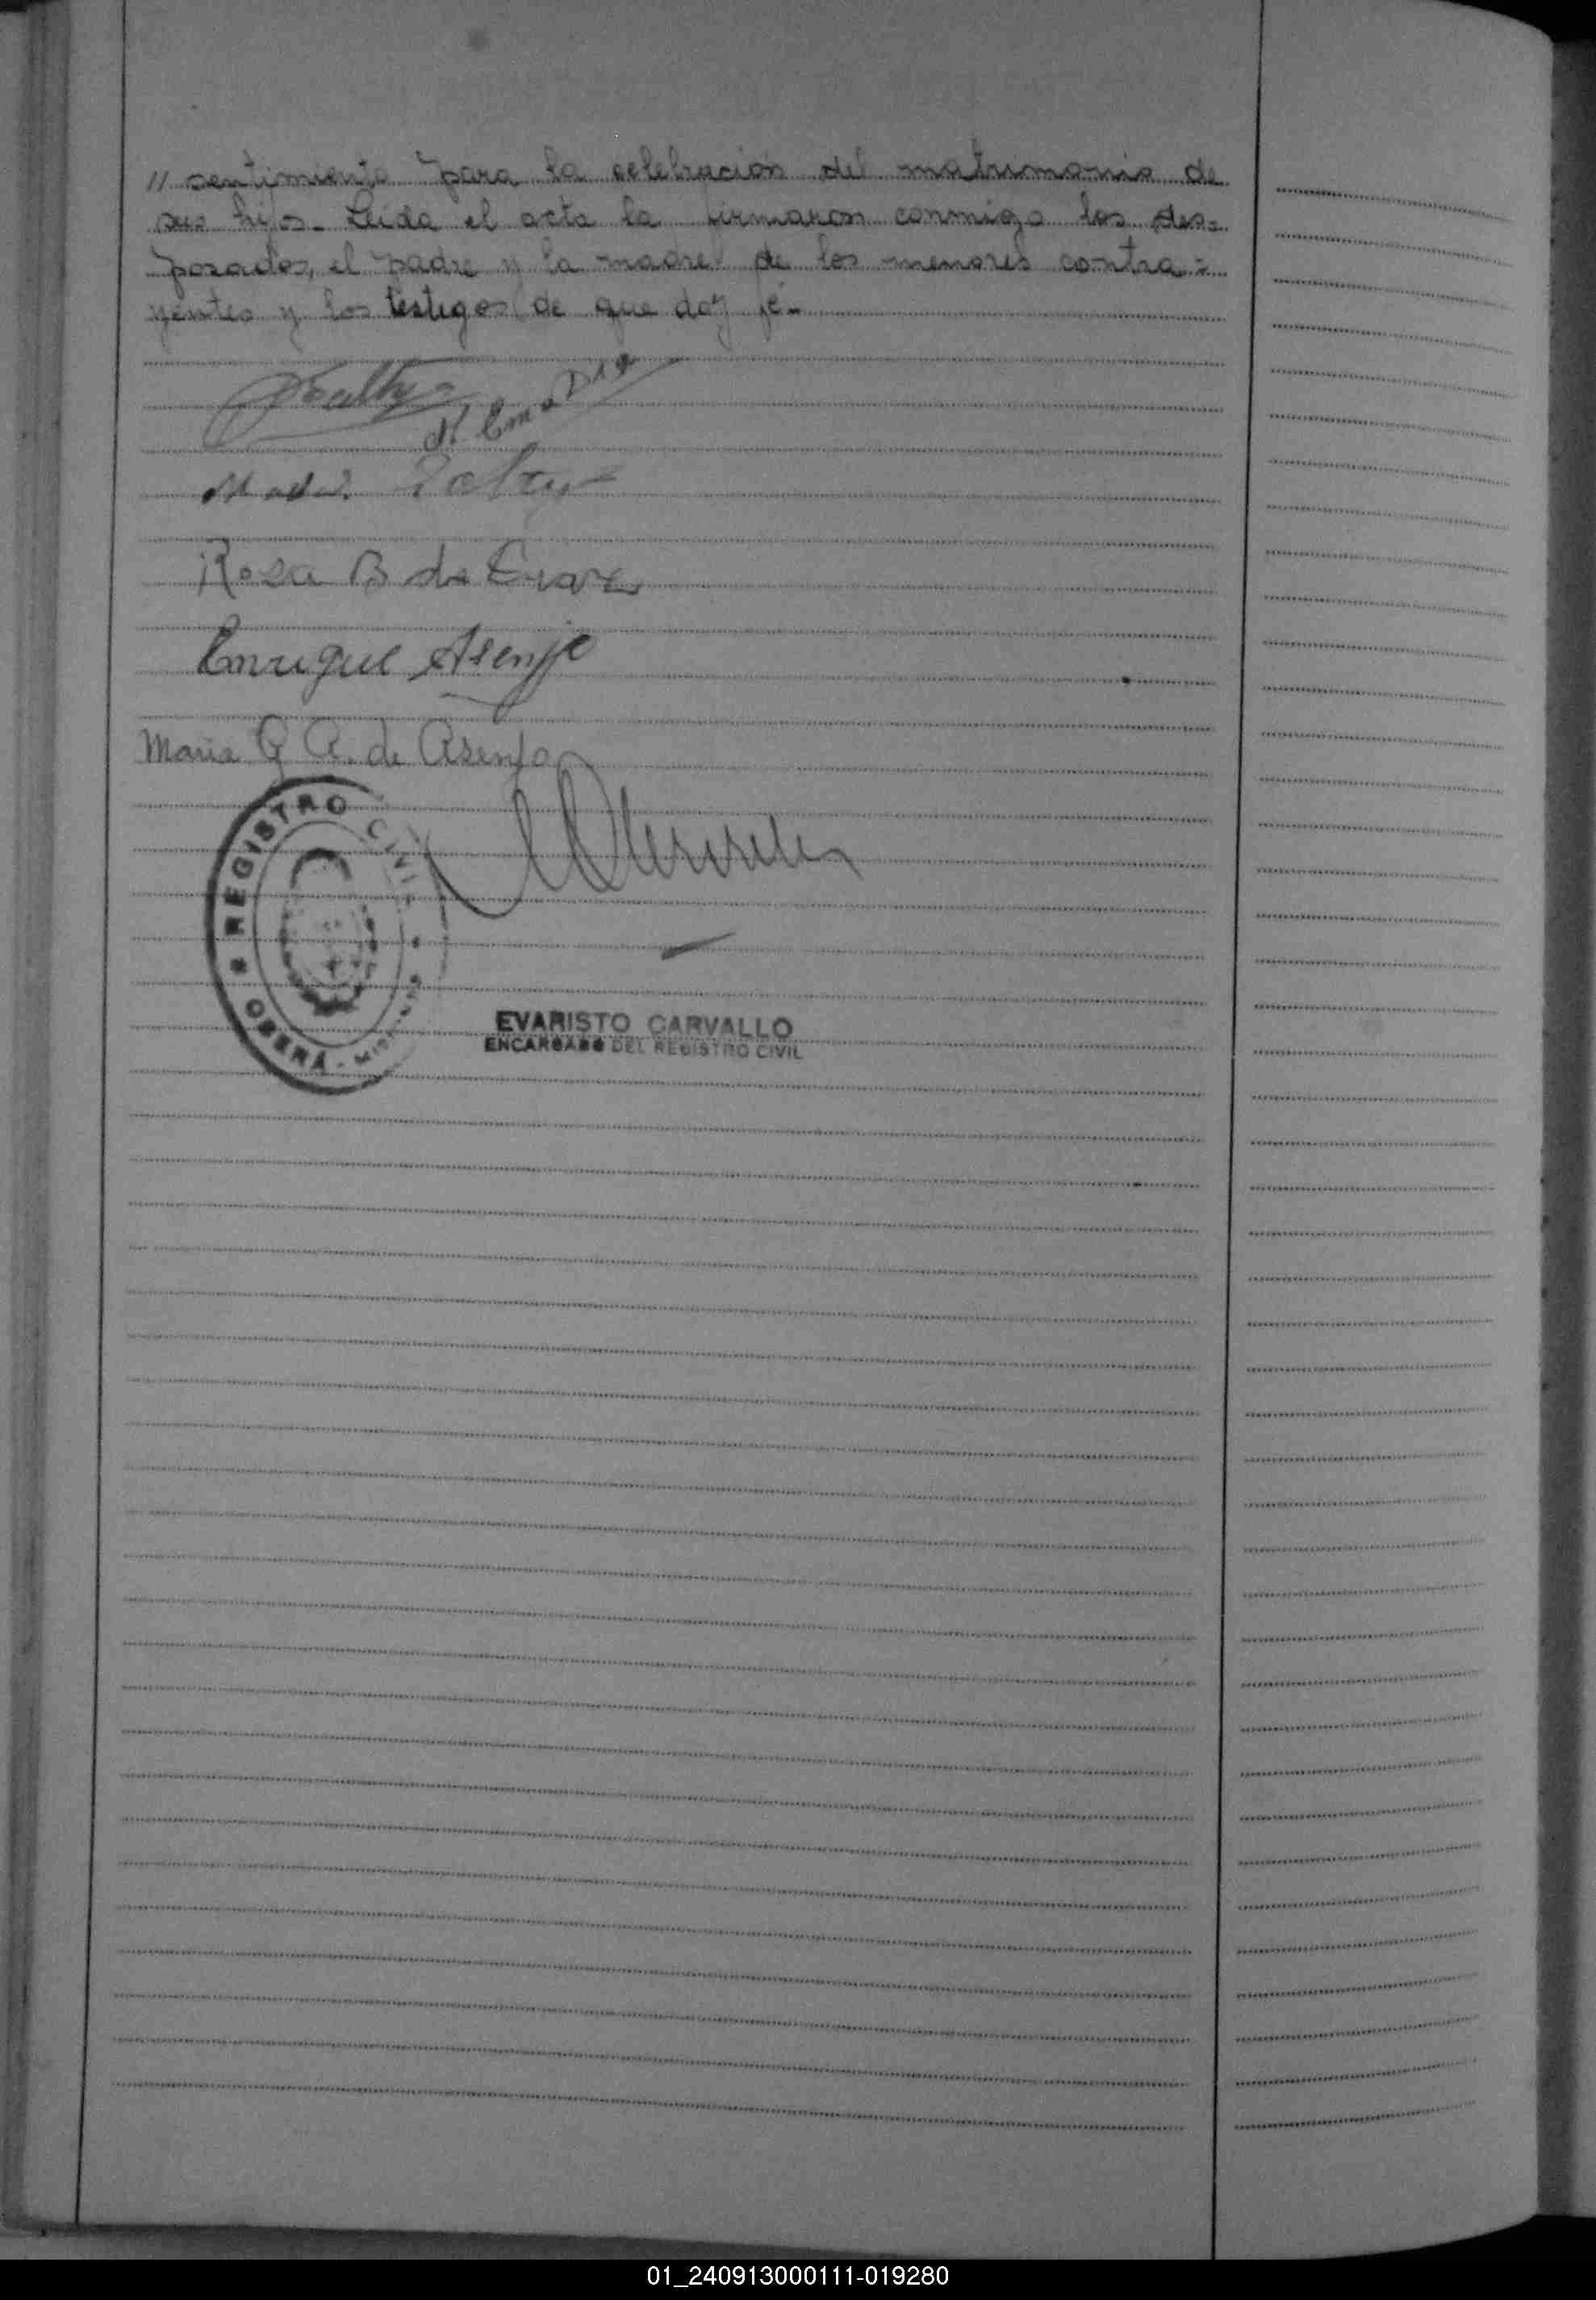 " sentimiento para la celebración del matrimonio de
sus hijos.- Leída el acta la firmaron conmigo los des=
posados, el padre y la madre de los menores contra=
yentes y los testigos de que doy fé.-
Rosa B de
Enrique Asenjo
Maria G A. de Asenjo
REGISTRO CIVIL
OBERÁ - MISIONES
EVARISTO CARVALLO
ENCARGADO DEL REGISTRO CIVIL
01_240913000111-019280